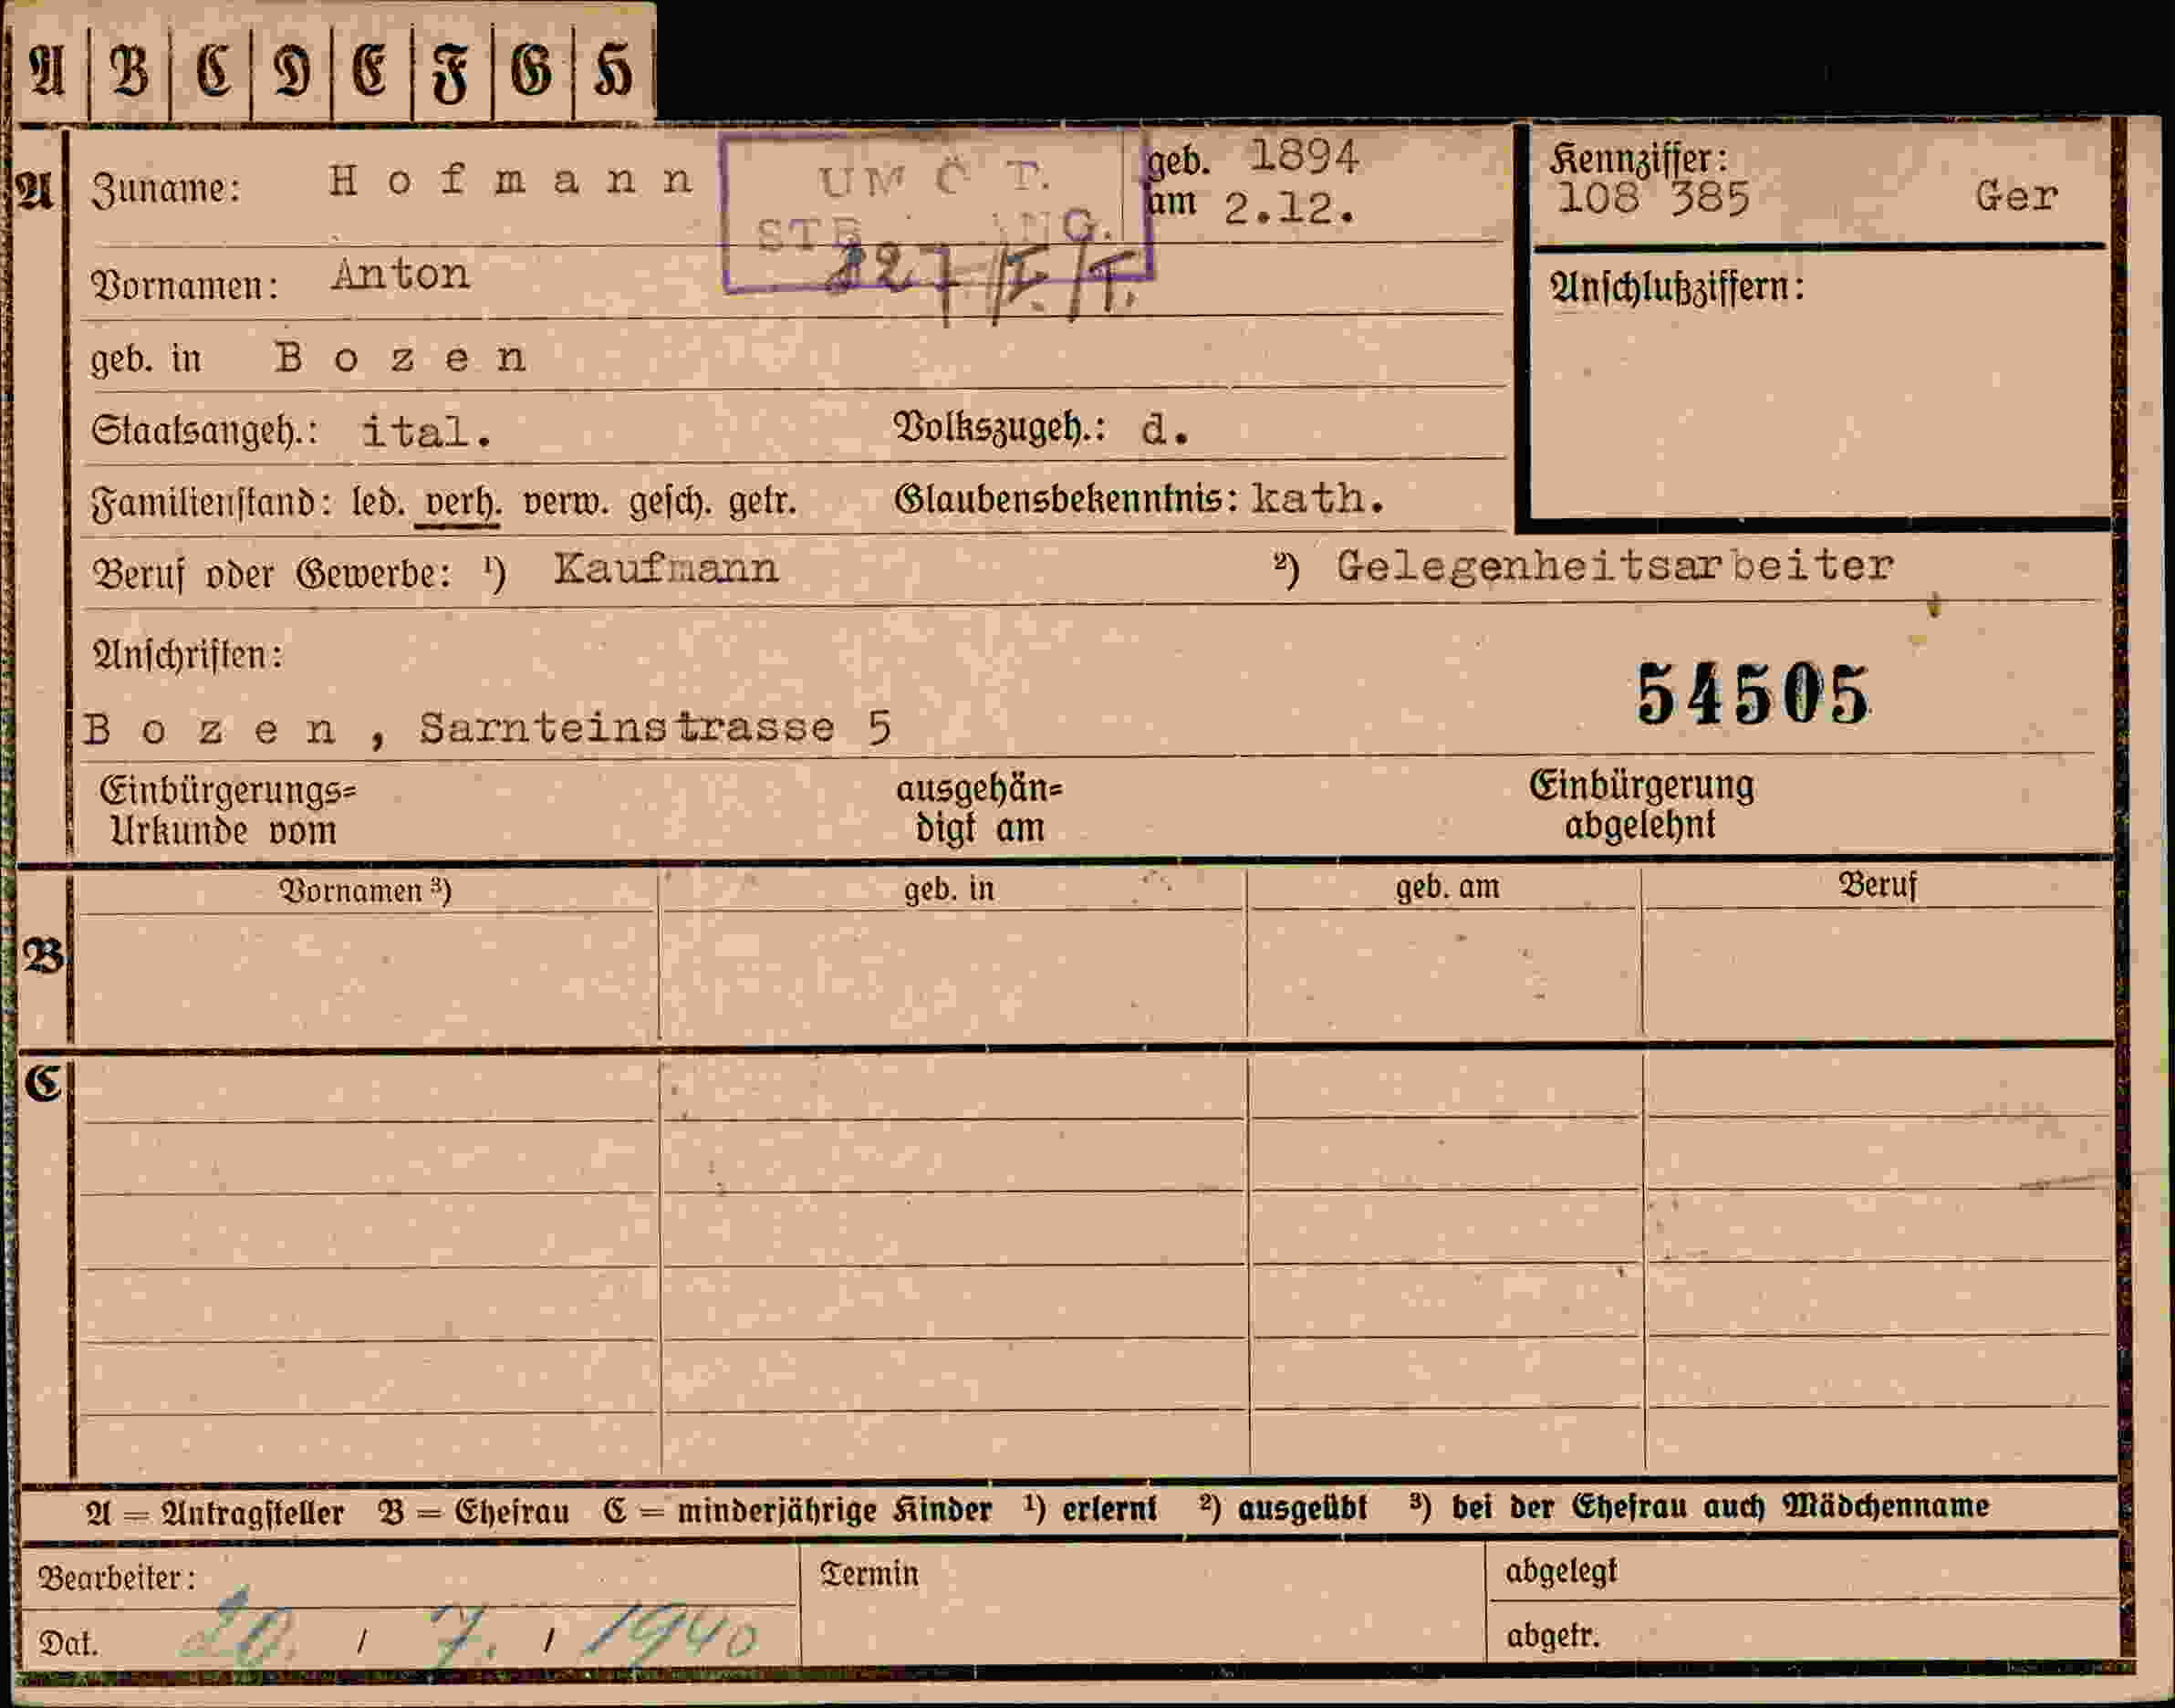 A B C D E F G H
A Zuname: Hofmann geb. 1894 Kennziffer:
am 2.12. 108 385 Ger
Vornamen: Anton Anschlußziffern:
geb. in Bozen
Staatsangeh.: ital. Volkszugeh.: d.
Familienstand: led. verh. verw. gesch. getr. Glaubensbekenntnis: kath.
Beruf oder Gewerbe: ¹) Kaufmann ²) Gelegenheitsarbeiter
Anschriften:
54505
Bozen, Sarnteinstrasse 5
Einbürgerungs= ausgehän= Einbürgerung
Urkunde vom digt am abgelehnt
Vornamen ³) geb. in geb. am Beruf
B
C
A = Antragsteller B = Ehefrau C = minderjährige Kinder ¹) erlernt ²) ausgeübt ³) bei der Ehefrau auch Mädchenname
Bearbeiter: Termin abgelegt
Dat. 20. / 7. / 1940 abgetr.